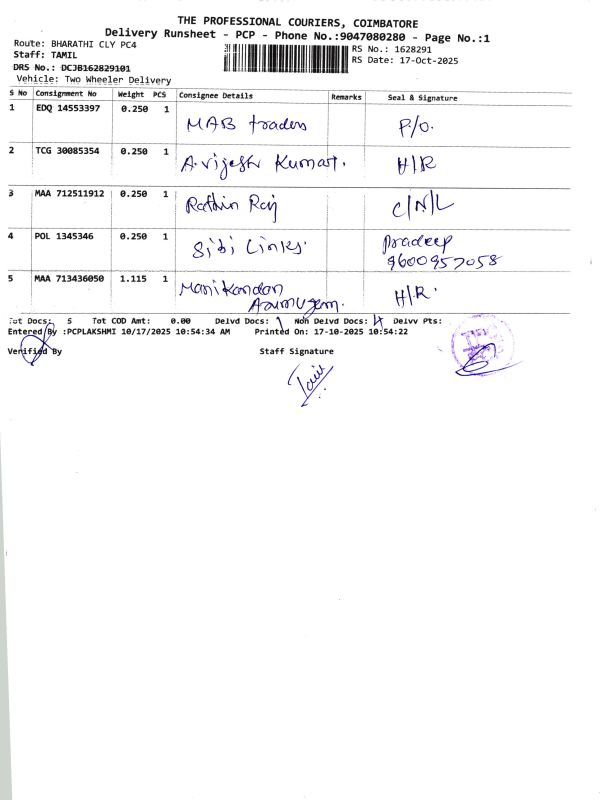 THE PROFESSIONAL COURIERS, COIMBATORE
Delivery Runsheet - PCP - Phone No.:9047080280 - Page No.:1
Route: BHARATHI CLY PC4
RS No.: 1628291
Staff: TAMIL
RS Date: 17-Oct-2025
DRS No.: DCJB162829101
Vehicle: Two Wheeler Delivery
S No Consignment No Weight PCS Consignee Details Remarks Seal & Signature
1 EDQ 14553397 0.250 1 MAB traders P/O.
2 TCG 30085354 0.250 1 A.vijesh Kumar. H/R
3 MAA 712511912 0.250 1 Rathin Raj C/N/L
4 POL 1345346 0.250 1 Sibi Links. Pradeep
9600957058
5 MAA 713436050 1.115 1 Manikandan H/R.
Arumugam.
Tot Docs: 5 Tot COD Amt: 0.00 Delvd Docs: 1 Non Delvd Docs: 4 Delvv Pts:
Entered By :PCPLAKSHMI 10/17/2025 10:54:34 AM Printed On: 17-10-2025 10:54:22
Verified By Staff Signature